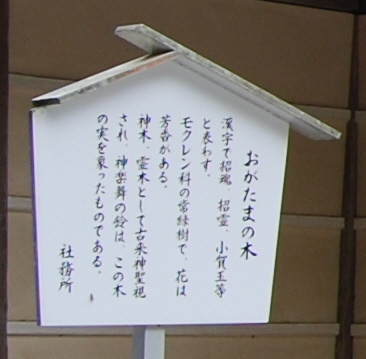 おがたまの木
漢字で招魂、招霊、小賀玉等
と表わす。
モクレン科の常緑樹で、花は
芳香がある。
神木、霊木として古来神聖視
され、神楽舞の鈴は、この木
の実を象ったものである。
社務所